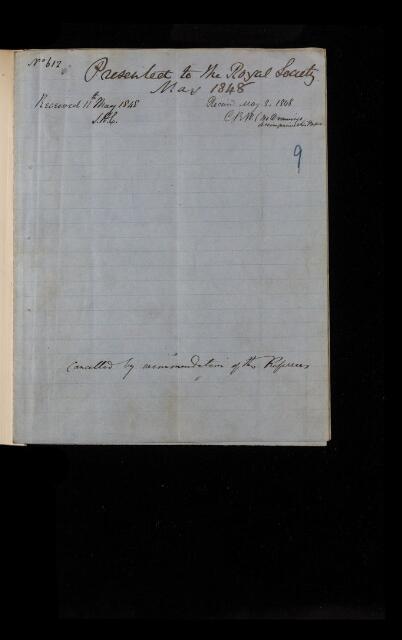 No 612
Presented to the Royal Society
May 1848
Received 11th May 1848
Received May 2. 1848
S.H.C.
C.R.W. (No Drawings
accompanied this Paper
9
Cancelled by recommendation of the Referees